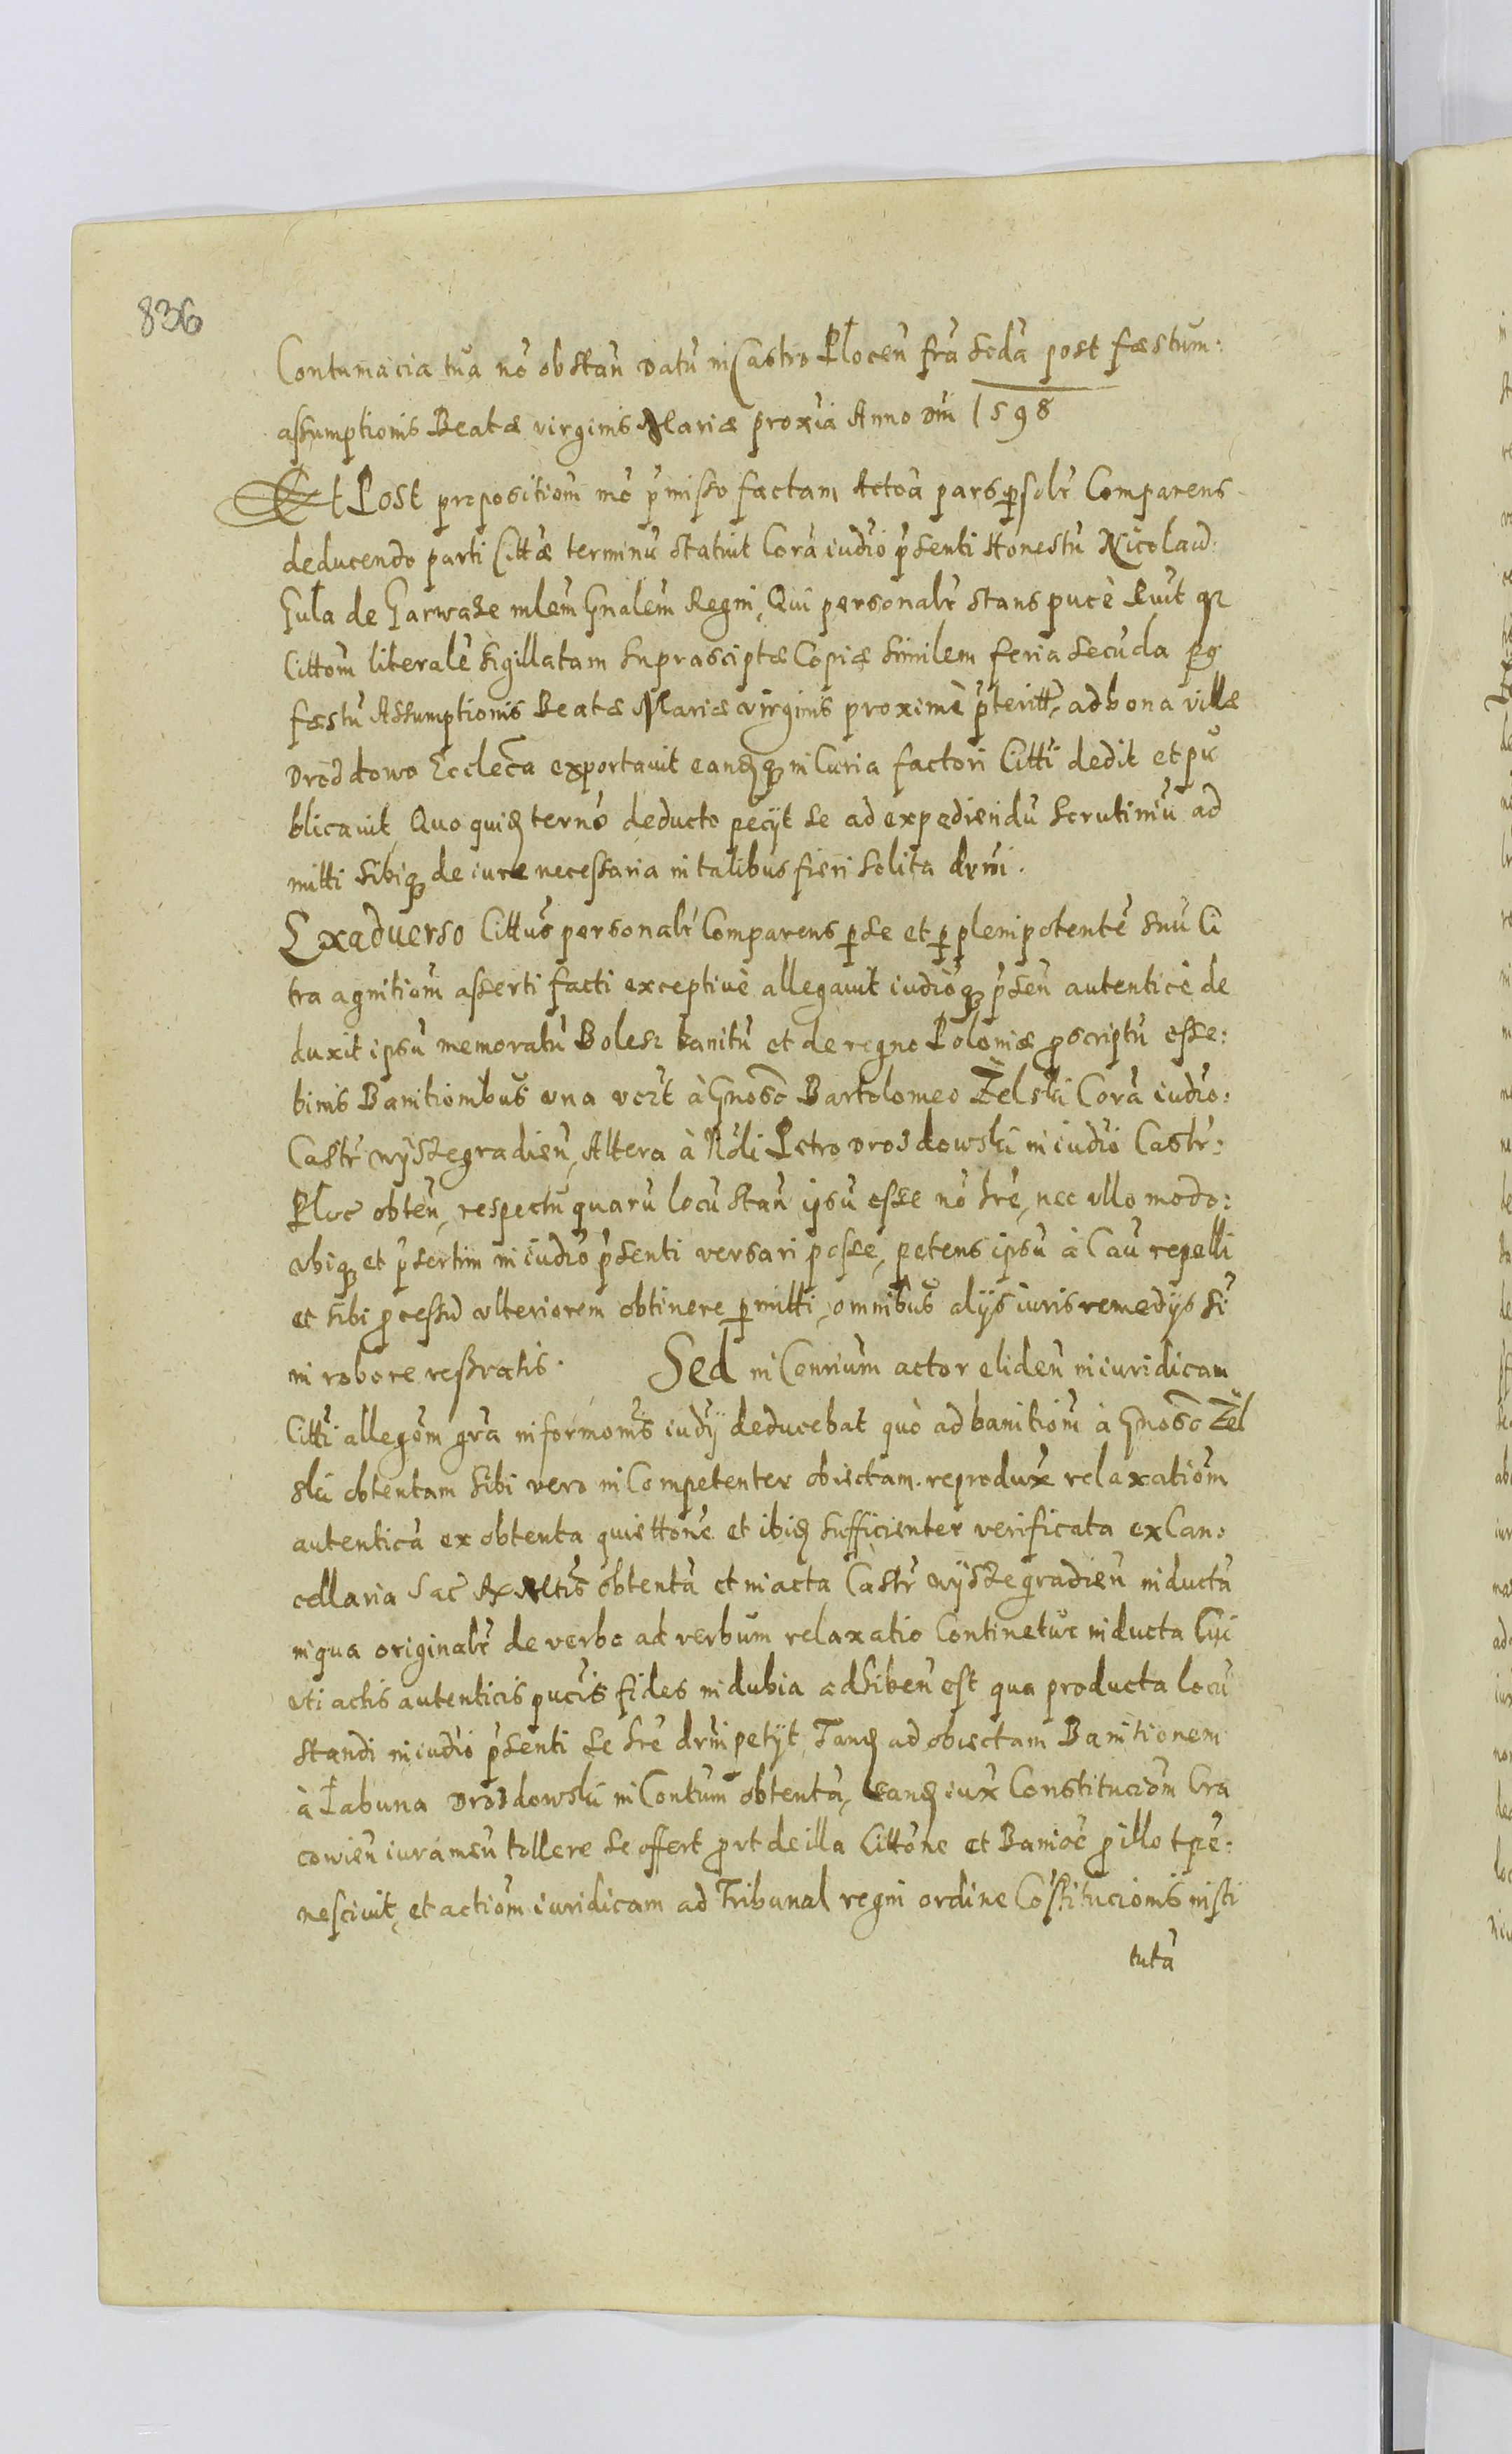 836
Contumacia tua nõ obstañ datũ in Castro Płoceñ fr̃a scda post fæstum:
assumptionis Beatæ virginis Mariæ proxĩa Anno dni 1598
Et Post propositiom̃ mõ p̃misso factam Actoa pars p̱solr̃ Comparens
deducendo parti Cittæ terminũ statuit Corã iudio p̃senti Honestũ Nicolaũ:
Guła de Garwaze mlem̃ Gnalem̃ Regni, Qui personalr̃ stans pucè Rwit qr
Cittom̃ literalẽ sigillatam suprascriptæ Copiæ similem feria secũda pg
fæstũ Assumptionis Beatæ Mariæ virginis proximè p̃teritt, ad bona villæ
Drozdowo Ecclecã exportavit eandq̃ in Curia factori Citti dedit et pu
blicavit, Quo quid ternõ deducto peciit se ad expediendũ scrutiniũ ad
mitti sibiq̃ de iure necessaria in talibus fieri solita drni.
Exadverso Cittus personalr̃ Comparens p̱ se et p̱ plenipotentẽ suũ Ci
tra agnitiom̃ asserti facti exceptivè allegavit iudioq̃ p̃señ autenticè de
duxit ipsũ memoratũ Bolesz banitũ et de regno Poloniæ proscriptũ esse:
binis Banitionibus una vcżt à Gnoso Bartolomeo Żelski Corã iudio:
Castr̃ wyszegradieñ, Altera à Nõli Petro Drozdowski in iudio Castr̃:
Płoc obteñ, respectu quarũ locũ stañ ipsũ esse nõ hrẽ, nec ullo modo:
ubiq̃ et p̃sertim in iudio p̃senti versari posse, petens ipsũ à Caũ repelli
et sibi processũ ulteriorem obtinere p̱mitti, omnibus alijs iuris remedijs si
in robore reßratis. Sed in Conrium actor elideñ in iuridicam
Citti allegom̃ gr̃a informonis iudij deducebat quò ad banitiom̃ à Gnoso Żel
ski obtentam sibi vero in Competenter obiectam. reprodux̃ relaxatiom̃
autenticã ex obtenta quiettone et ibid sufficienter verificata ex Can:
cellaria Sac Rx Mtis obtentã et in acta Castr̃ wyszegradieñ inductã
in qua originalr̃ de verbo ad verbum relaxatio Continetur inducta Cui
uti actis autenticis pucis fides indubia adhibeñ est qua producta locũ
standi in iudio p̃senti se hrẽ drni petijt, Tand ad obiectam Banitionem
à Łabuna Drozdowski in Contum̃ obtentã, eand iux̃ Constituciom̃ Cra
covieñ iurameñ tollere se offert prt de illa Cittone et Banioe pro illo tpe:
nescivit, et actiom̃ iuridicam ad Tribunal regni ordine Cõstitucionis insti
tutã